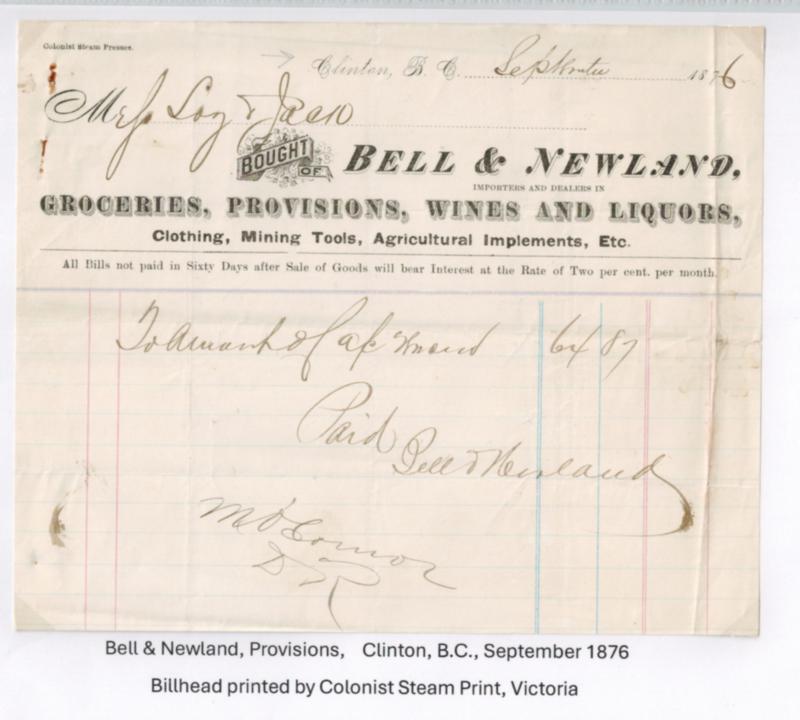 Colonist Steam Presses.
Clinton, B. C. September 1876
Mess Loy & Jack
BOUGHT OF BELL & NEWLAND,
IMPORTERS AND DEALERS IN
GROCERIES, PROVISIONS, WINES AND LIQUORS,
Clothing, Mining Tools, Agricultural Implements, Etc.
All Bills not paid in Sixty Days after Sale of Goods will bear Interest at the Rate of Two per cent. per month.
To Amount of a/c 64 87
Paid
Bell & Newland
Bell & Newland, Provisions, Clinton, B.C., September 1876
Billhead printed by Colonist Steam Print, Victoria